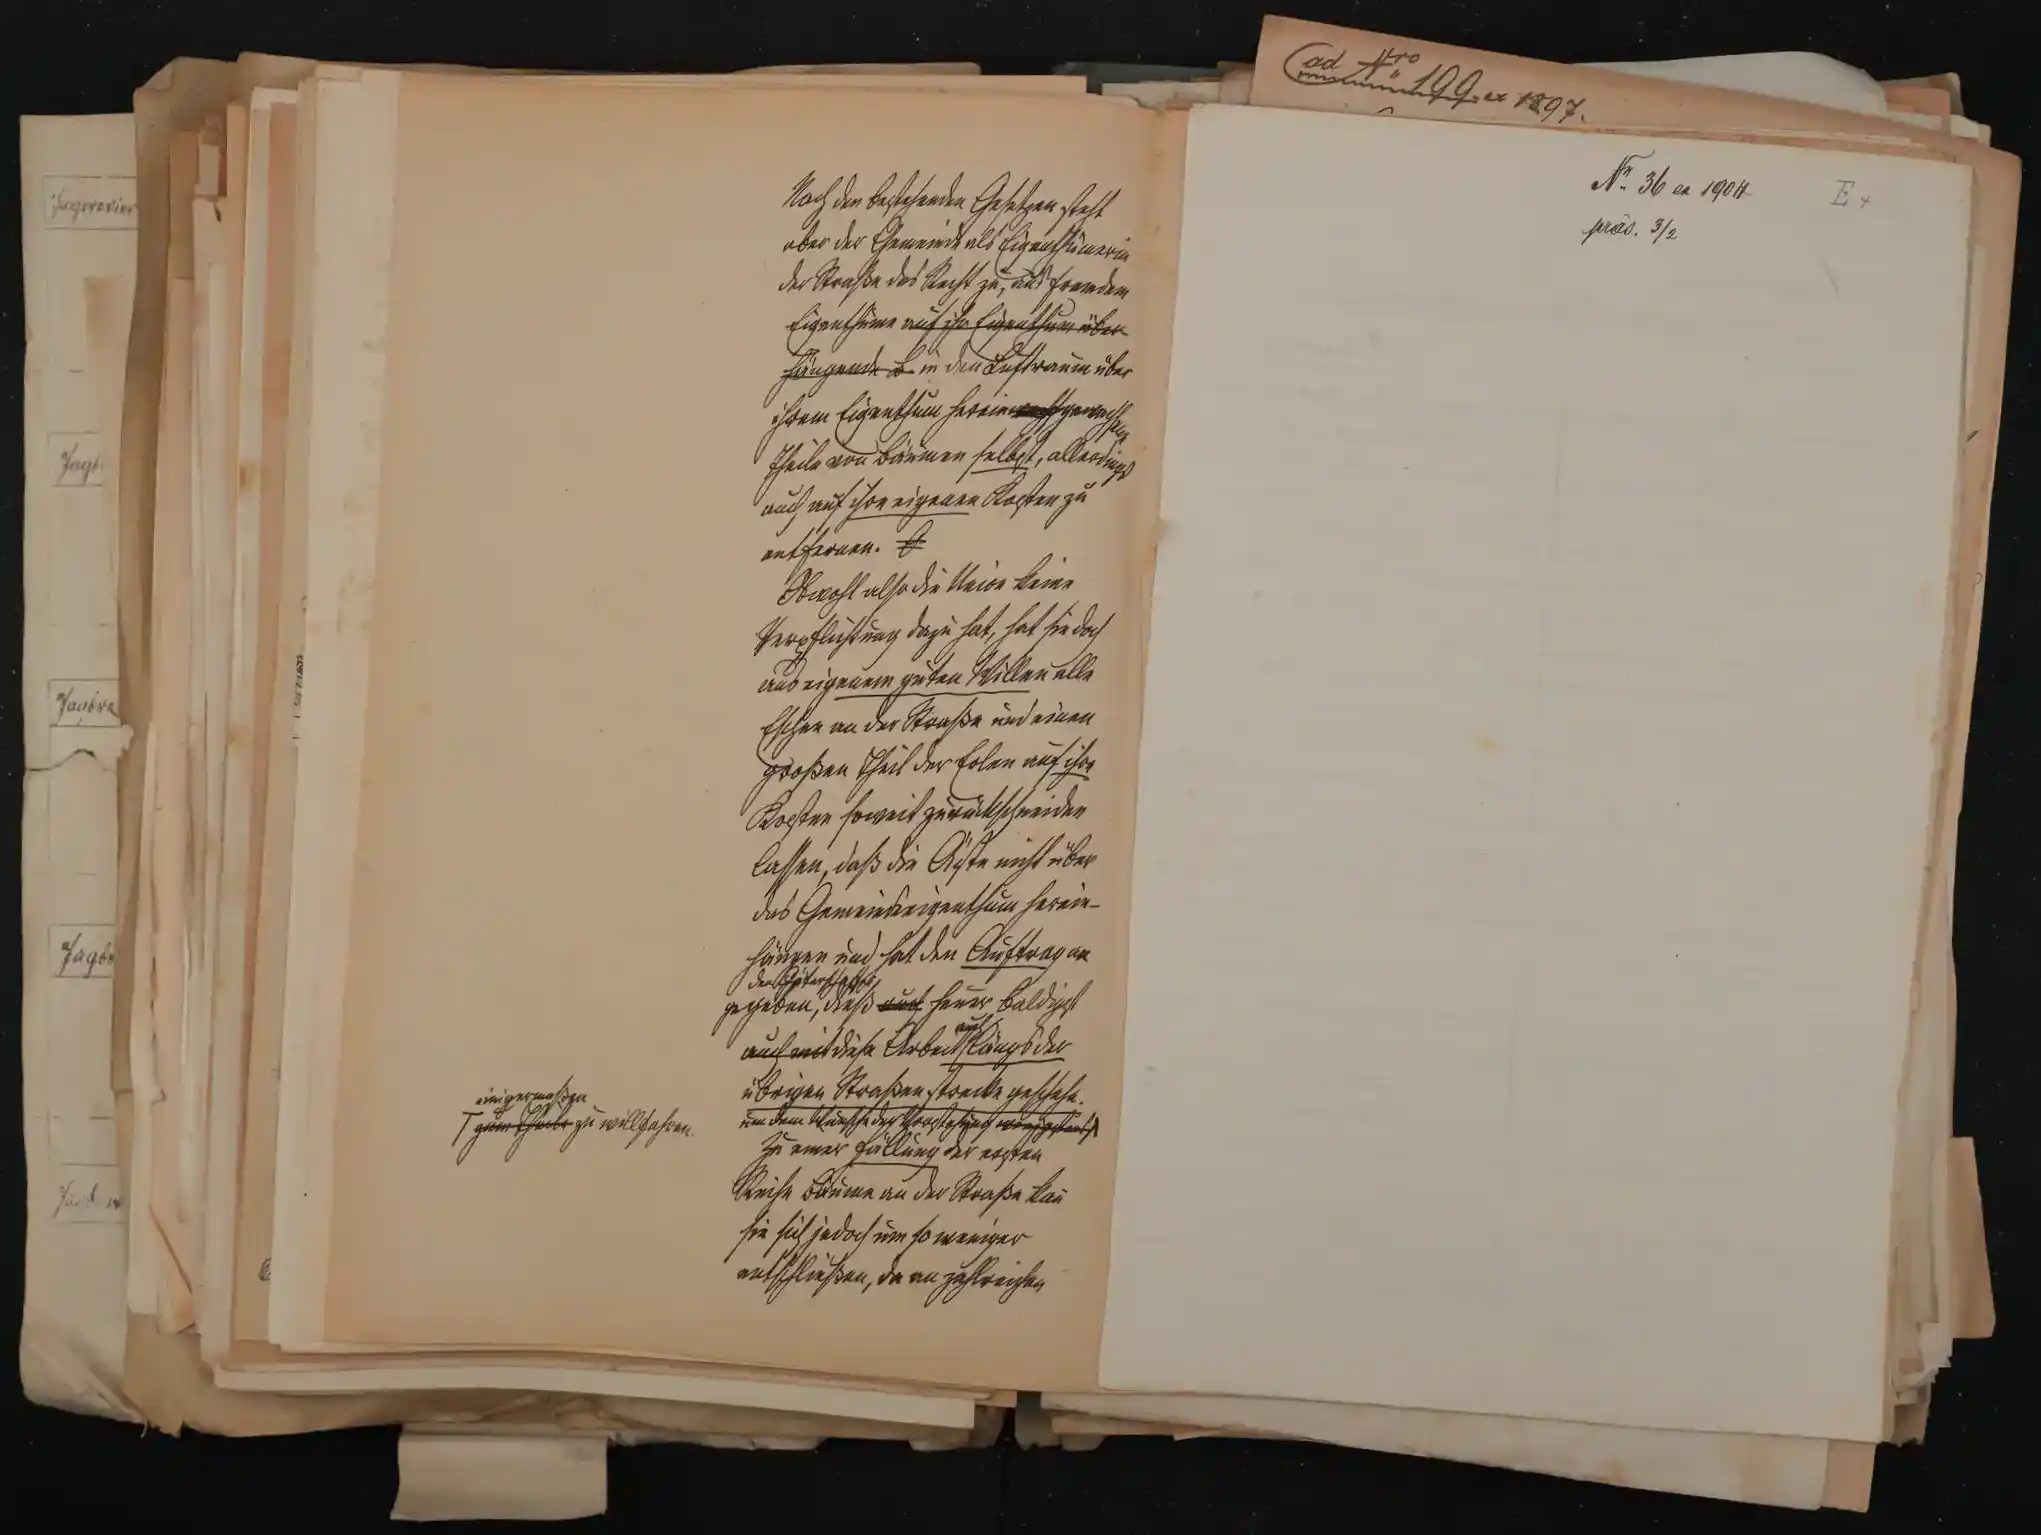 Jagdrevier
Jagd
Jagdre
Jagdb
Nach den bestehenden Gesetzen steht
aber der Gemeinde als Eigenthümerin
der Straße das Recht zu, aus fremdem
Eigenthume auf ihr Eigenthum über-
hängende B in den Luftraum über
ihrem Eigenthum hereingewachsene
Theile von Bäumen selbst, allerdings
auch auf ihre eigenen Kosten zu
entfernen.
Obwohl also die Union keine
Verpflichtung dazu hat, hat sie doch
aus eigenem guten Willen alle
Eschen an der Straße und einen
großen Theil der Erlen auf ihre
Kosten soweit zurückschneiden
lassen, daß die Äste nicht über
das Gemeindeeigenthum herein-
hängen und hat den Auftrag an
den Güterchef
gegeben, dieß auch heuer baldigst
auch
auch mit diese Arbeit längs der
übrigen Straßenstrecke geschehe.
um dem Wunsche der Vorstehung wenigstens
einigermaßen
zum Theile zu willfahren.
Zu einer Fällung der ersten
Reihe Bäume an der Straße kann
sie sich jedoch um so weniger
entschließen, da an zahlreichen
ad Nro 199 ex 1897.
Nr. 36 ex 1904
präs. 3/2
E 4